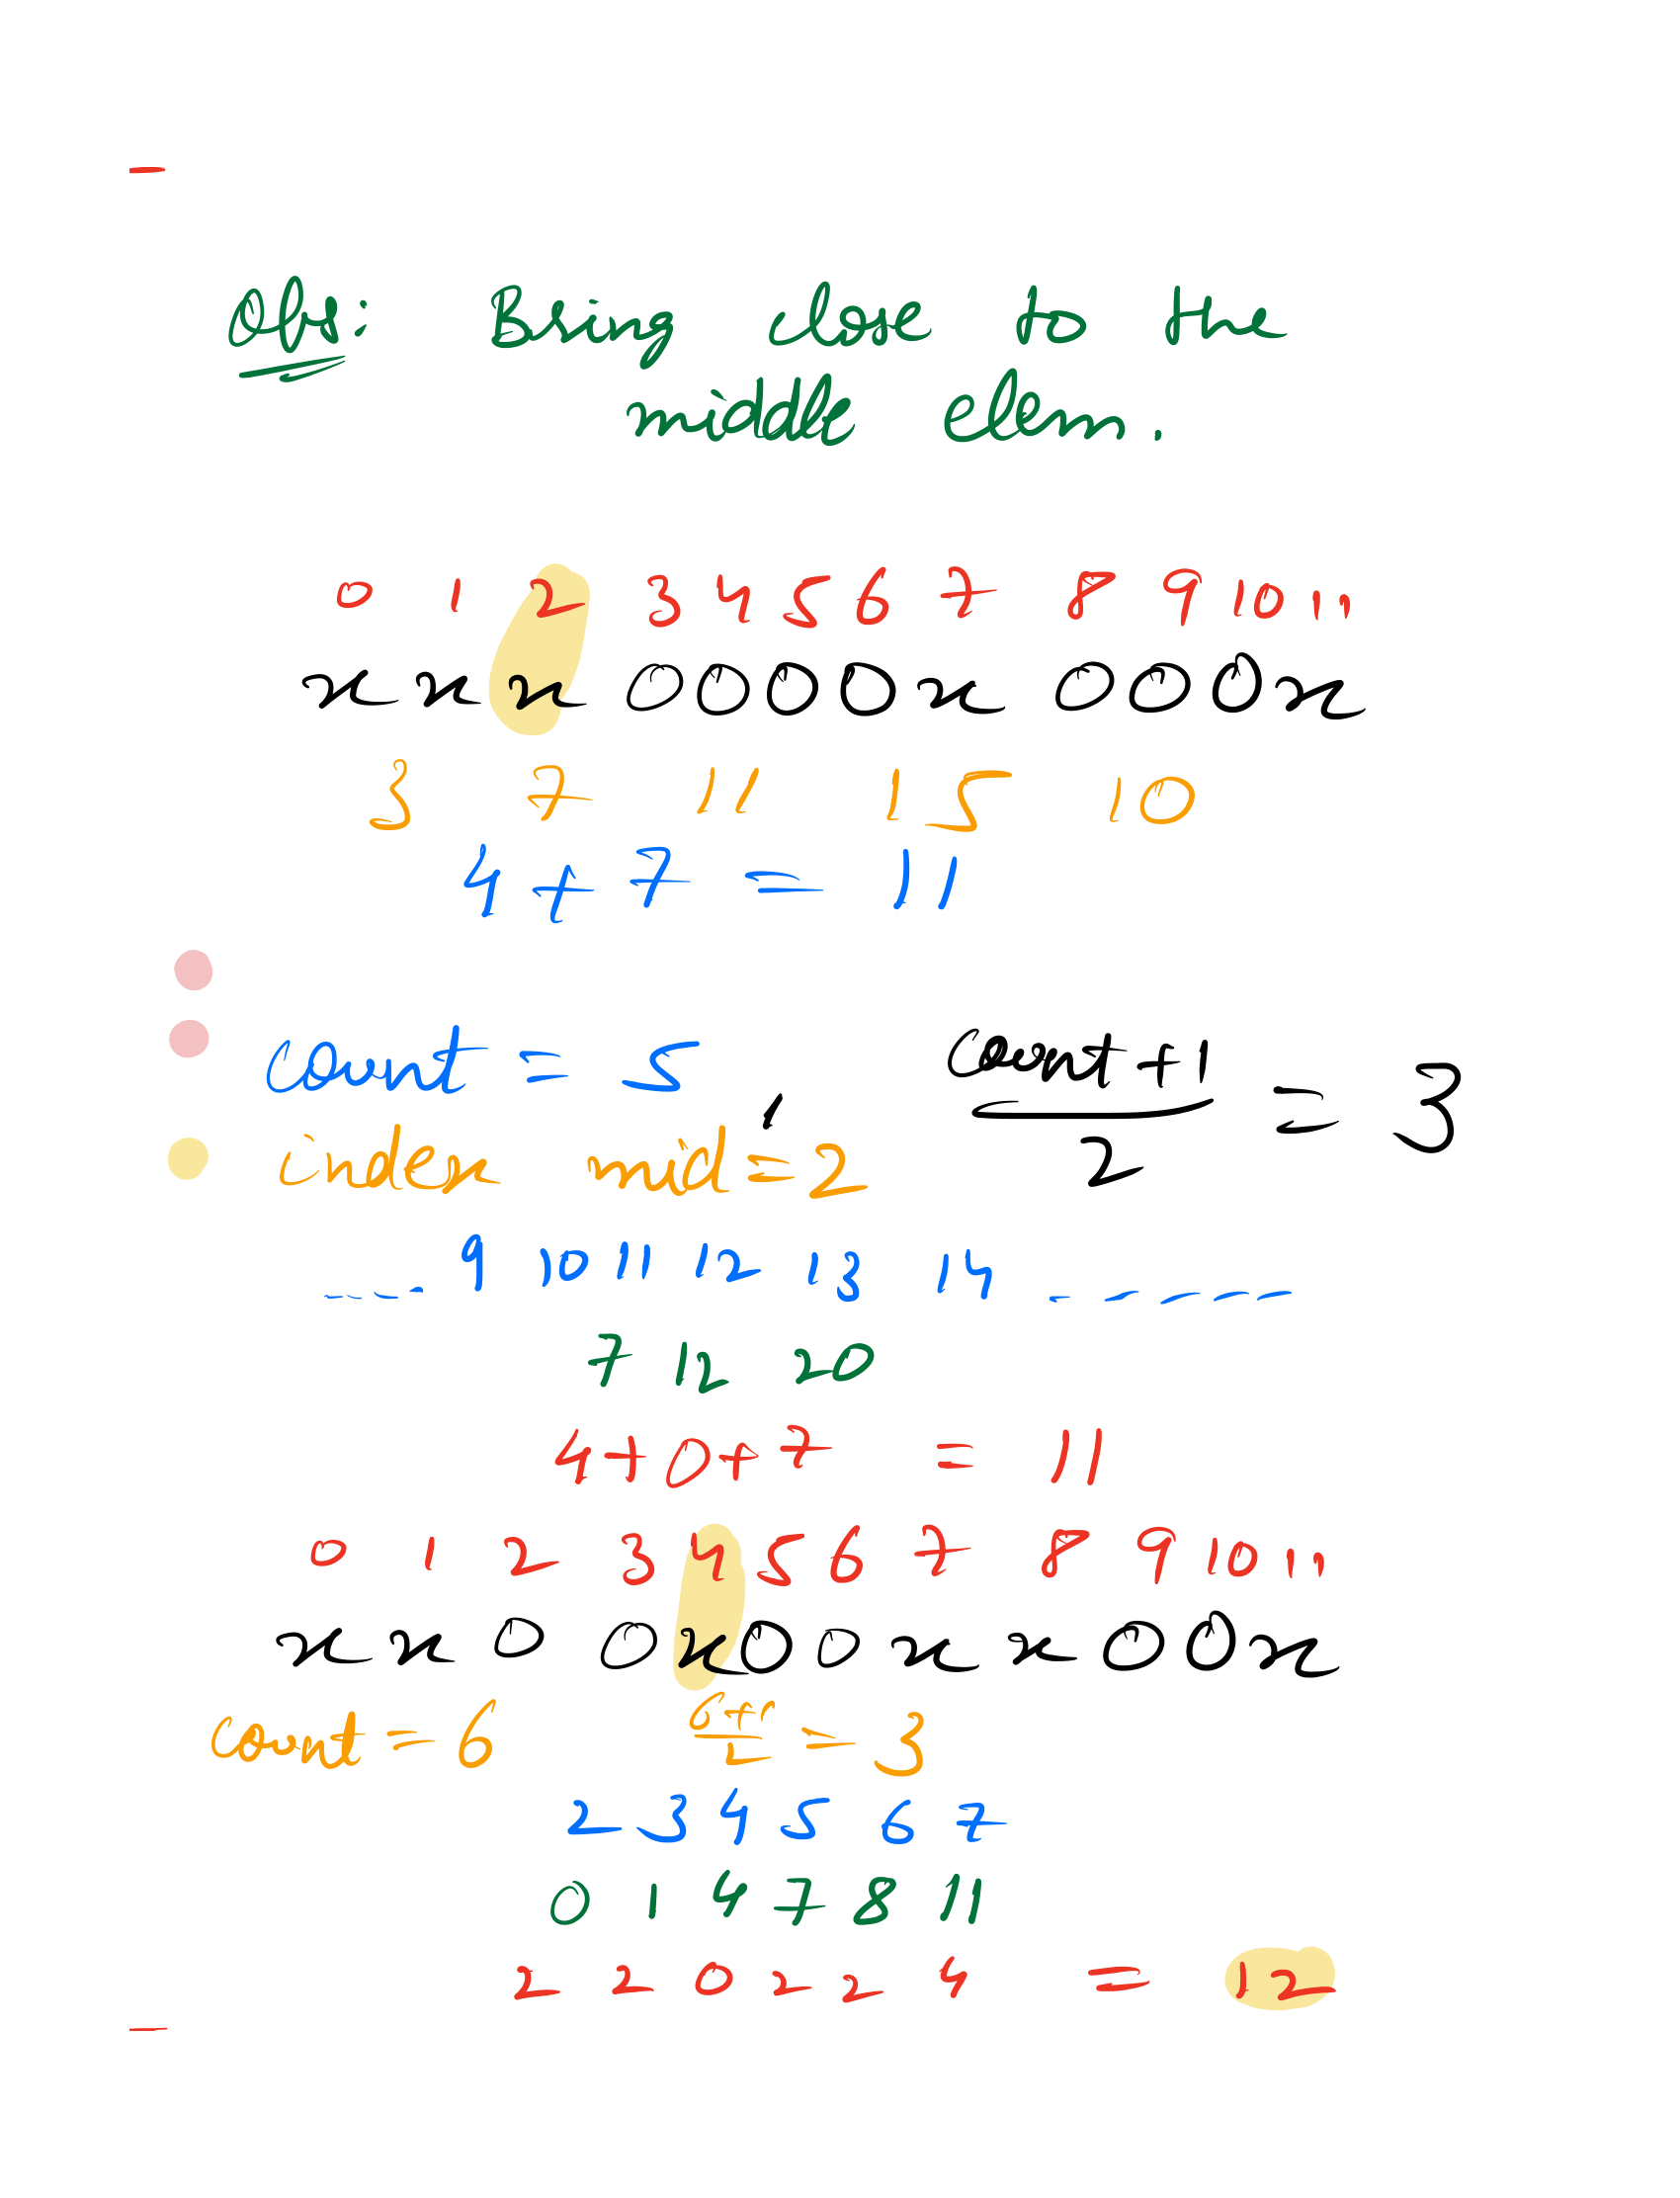 Obs: Bring close to the
middle elem.
0 1 2 3 4 5 6 7 8 9 10 11
x x x 0 0 0 0 x 0 0 0 x
3 7 11 15 10
4 + 7 = 11
count = 5, count + 1 / 2 = 3
index mid = 2
---- 9 10 11 12 13 14 -----
7 12 20
4 + 0 + 7 = 11
0 1 2 3 4 5 6 7 8 9 10 11
x x 0 0 x 0 0 x x 0 0 x
count = 6 6+1 / 2 = 3
2 3 4 5 6 7
0 1 4 7 8 11
2 2 0 2 2 4 = 12